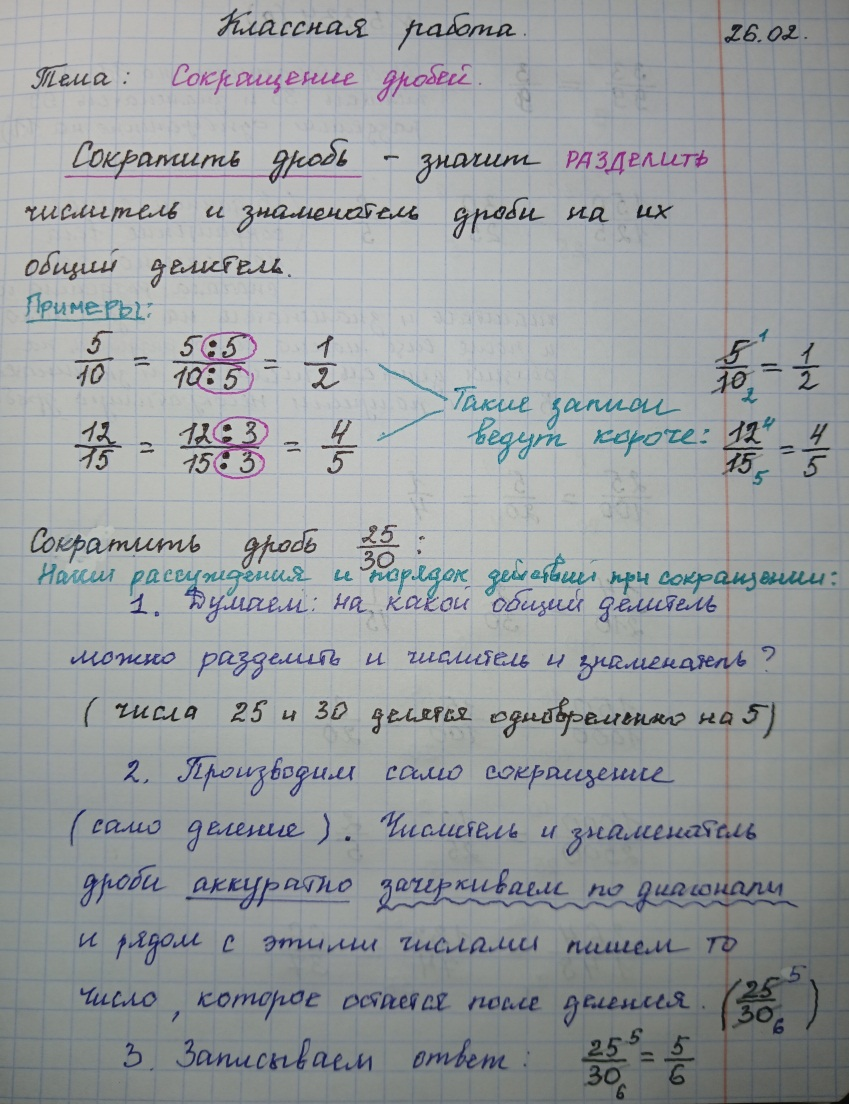 Классная работа. 26.02.
Тема: Сокращение дробей.
Сократить дробь – значит РАЗДЕЛИТЬ
числитель и знаменатель дроби на их
общий делитель.
Примеры:
5/10 = 5:5/10:5 = 1/2 5¹/10₂ = 1/2
Такие записи
ведут короче:
12/15 = 12:3/15:3 = 4/5 12⁴/15₅ = 4/5
Сократить дробь 25/30:
Наши рассуждения и порядок действий при сокращении:
1. Думаем: на какой общий делитель
можно разделить и числитель и знаменатель?
(числа 25 и 30 делятся одновременно на 5)
2. Производим само сокращение
(само деление). Числитель и знаменатель
дроби аккуратно зачеркиваем по диагонали
и рядом с этими числами пишем то
число, которое остается после деления. (25⁵/30₆)
3. Записываем ответ: 25⁵/30₆ = 5/6